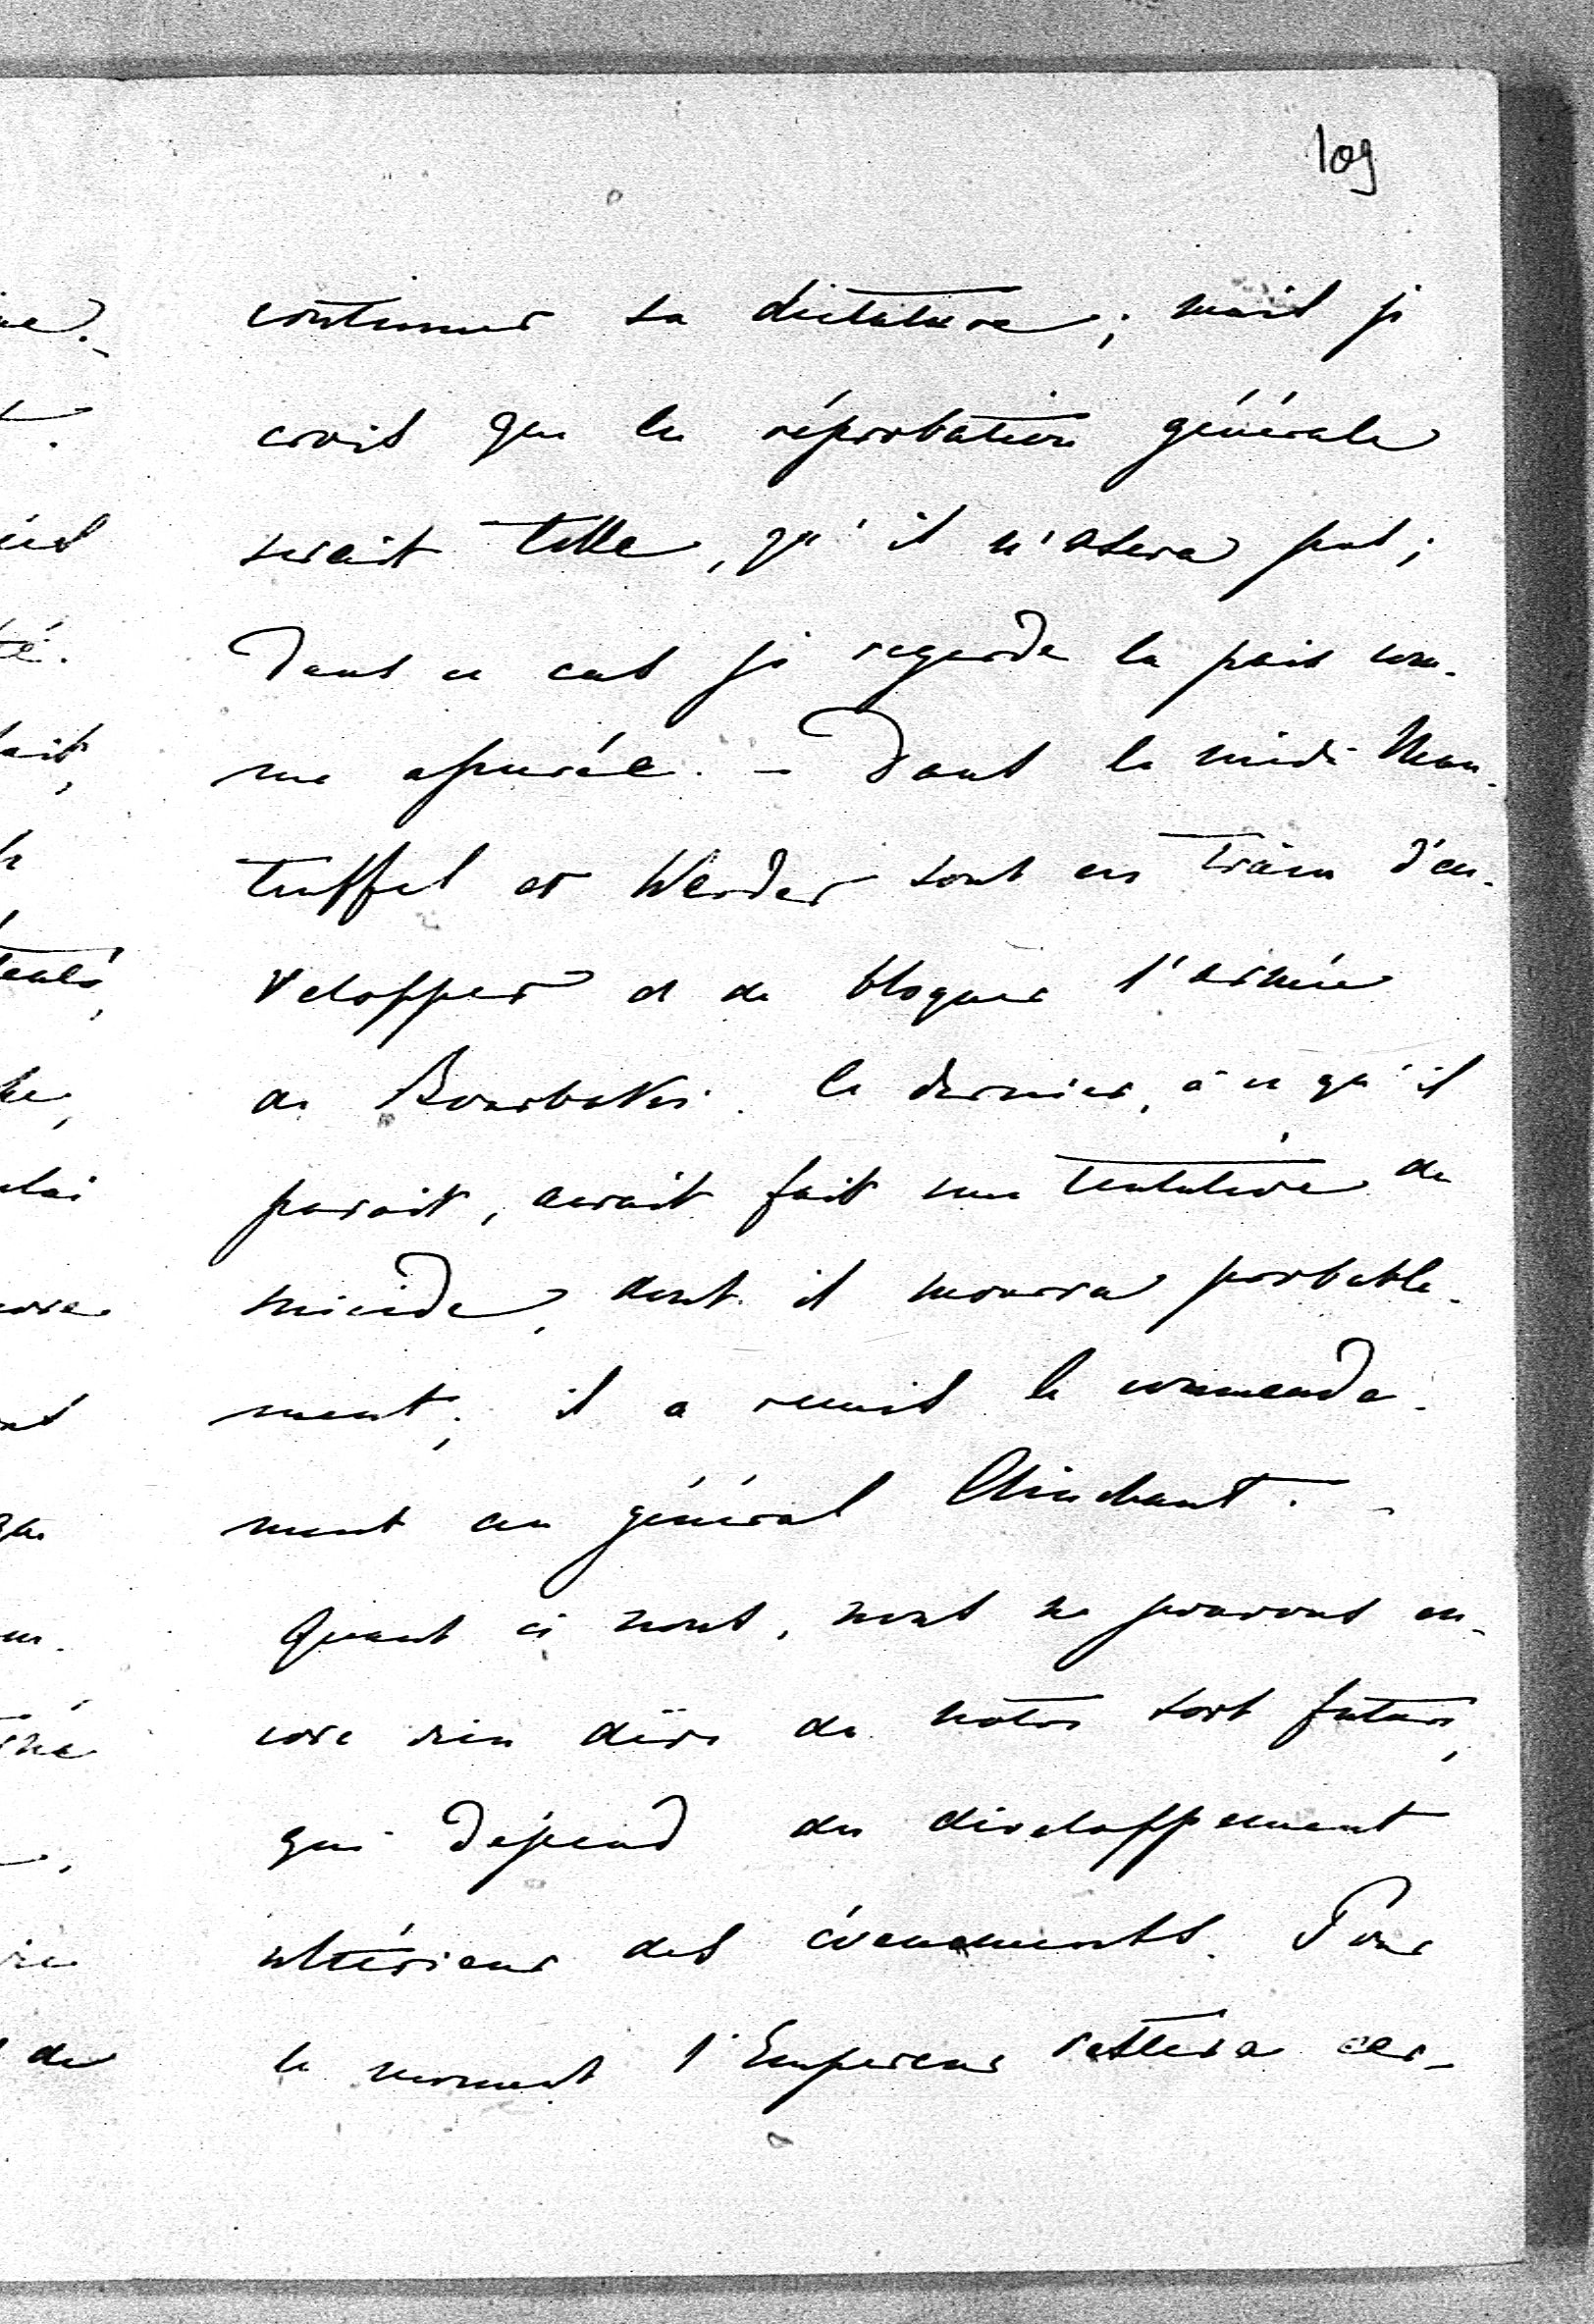 109
continuer sa dictature; mais je
crois que la réprobation générale
serait telle, qu'il n'osera pas;
Dans ce cas je regarde la paix com-
me assurée. – Dans le midi Man-
teuffel et Werder sont en train d'en-
velopper et de bloquer l'armée
de Bourbaki. Ce dernier, à ce qu'il
parait, aurait fait une tentative de
suicide, dont il mourra probable-
ment; il a remis le commande-
ment au général Clinchant. –
Quant à nous, nous ne pouvons en-
core rien dire de notre sort futur,
qui dépend du développement
ultérieur des évenements. Pour
le moment l'Empereur restera cer-